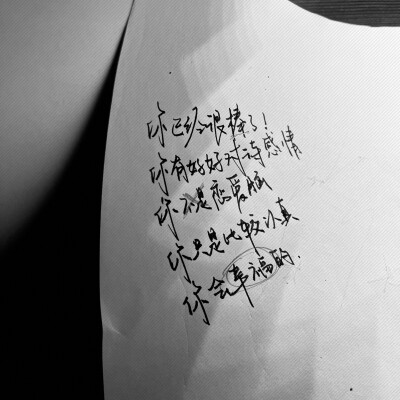 你已经很棒了!
你有好好对待感情
你不是恋爱脑
你只是比较认真
你会幸福的.